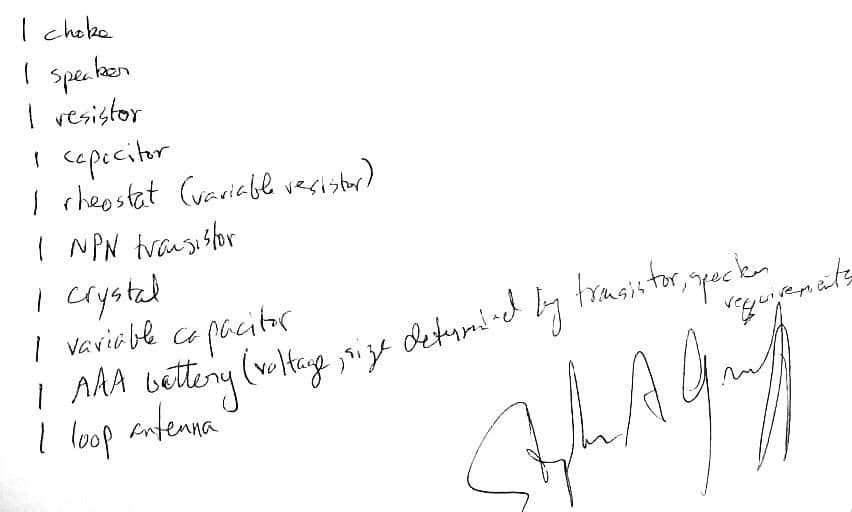 1 choke
1 speaker
1 resistor
1 capacitor
1 rheostat (variable resistor)
1 NPN transistor
1 crystal
1 variable capacitor
1 AAA battery (voltage, size determined by transistor, speaker requirements
1 loop antenna
Stephen A